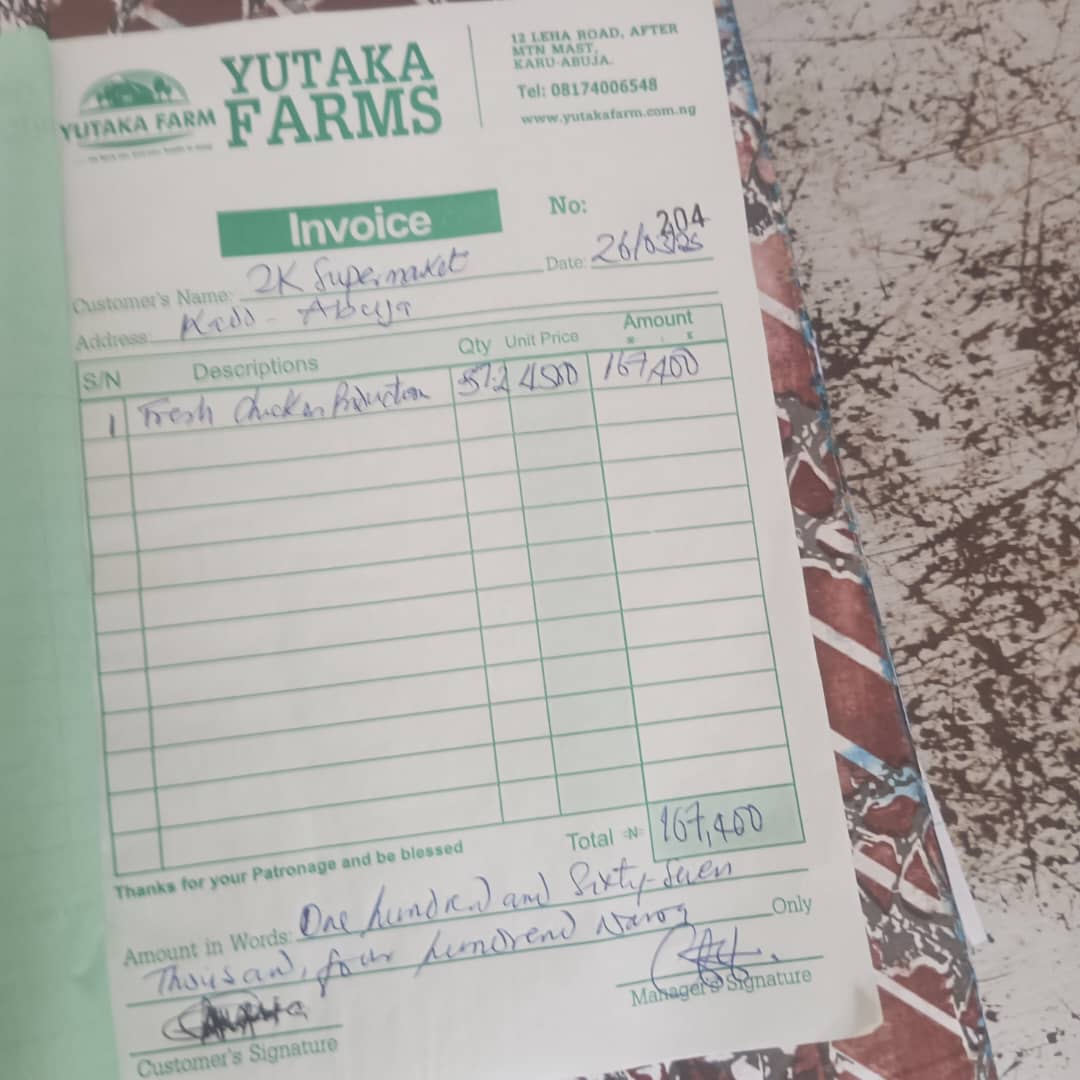 YUTAKA FARM
YUTAKA
FARMS
12 LEHA ROAD, AFTER
MTN MAST,
KARU-ABUJA.
Tel: 08174006548
www.yutakafarm.com.ng
Invoice
No: 204
Customer's Name: 2K Supermaket
Date: 26/03/25
Address: Kado - Abuja
S/N Descriptions Qty Unit Price Amount
1 Fresh Chicken Production 37.2 4500 167,400
Thanks for your Patronage and be blessed
Total =N= 167,400
Amount in Words: One hundred and Sixty-Seven
Thousand, four hundrend Naira Only
Customer's Signature
Manager's Signature